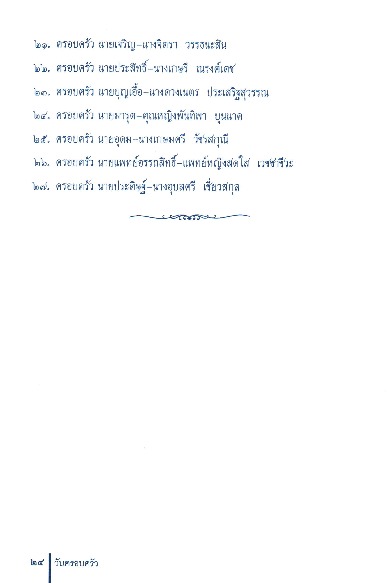 ๒๑. ครอบครัว นายเจริญ-นางจิตรา วรรธนะสิน
๒๒. ครอบครัว นายประสิทธิ์-นางเกษรี ณรงค์เดช
๒๓. ครอบครัว นายบุญเอื้อ-นางดวงเนตร ประเสริฐสุวรรณ
๒๔. ครอบครัว นายมารุต-คุณหญิงพันทิพา บุนนาค
๒๕. ครอบครัว นายอุดม-นางเกษมศรี วัชรสกุณี
๒๖. ครอบครัว นายแพทย์อรรถสิทธิ์-แพทย์หญิงสดใส เวชชาชีวะ
๒๗. ครอบครัว นายประดิษฐ์-นางอุบลศรี เชี่ยวสกุล
๒๔ วันครอบครัว